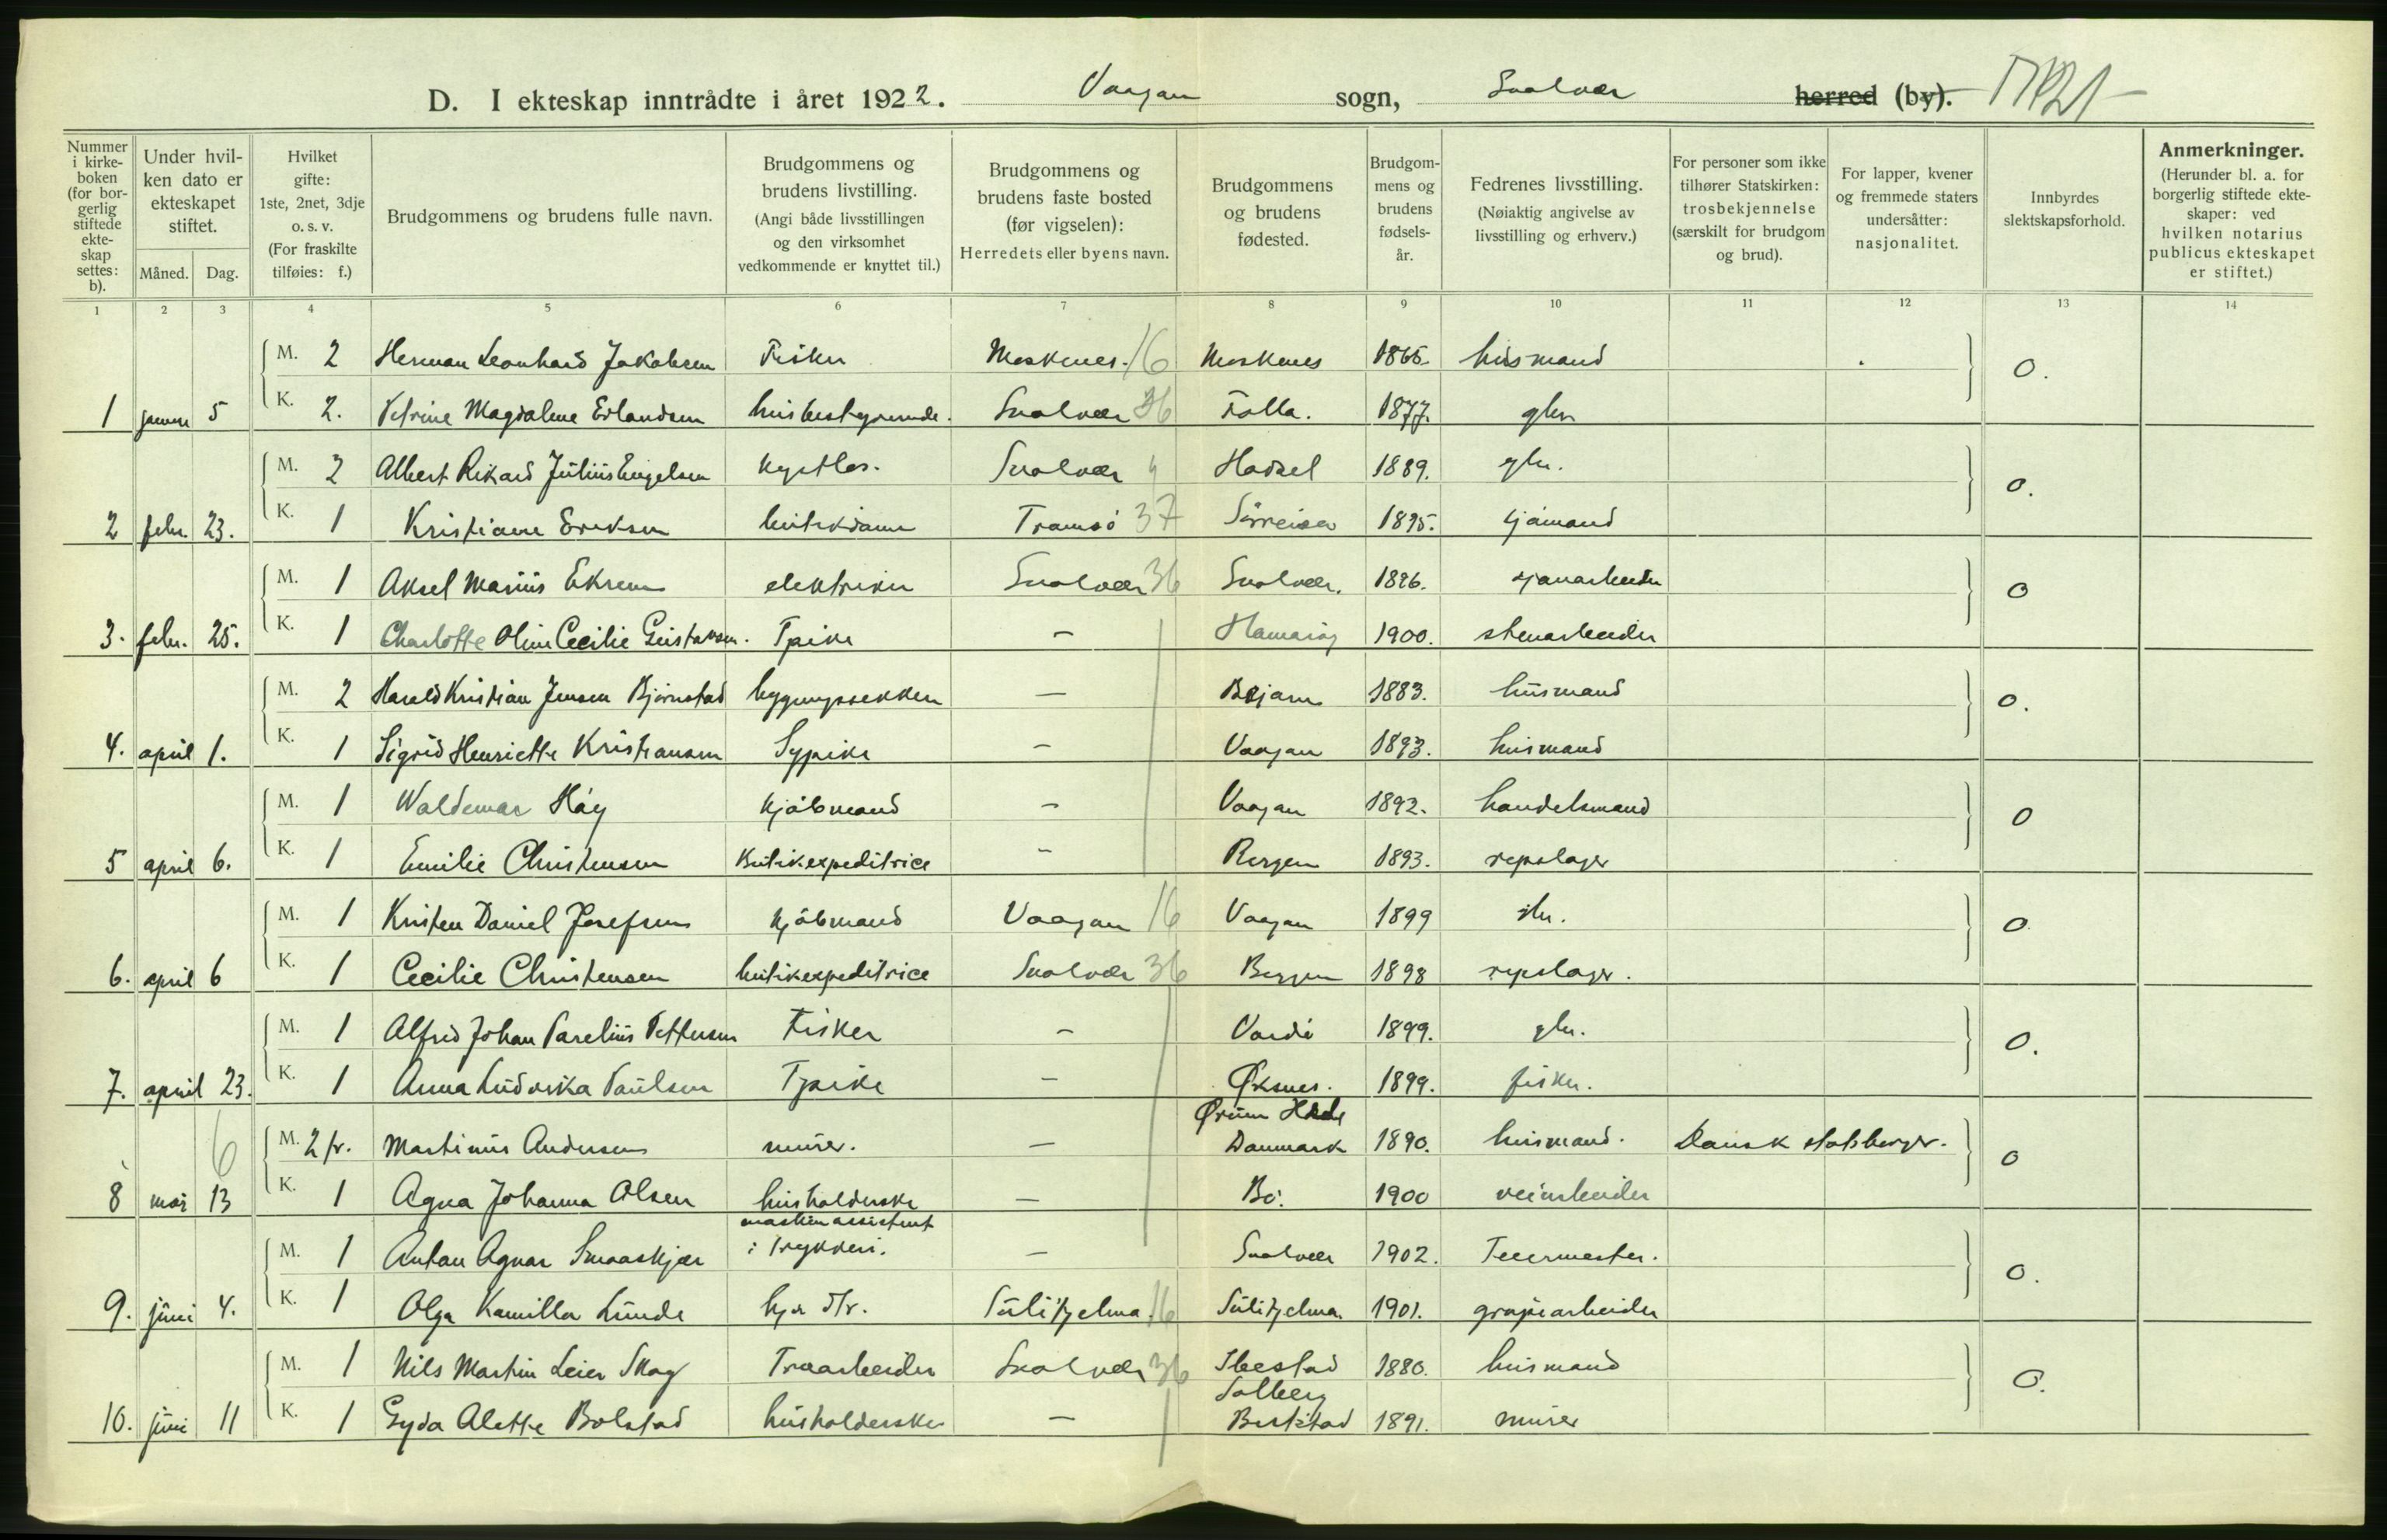 D. I ekteskap inntrådte i året 1922. Vaagan sogn, Svolvær herred (by).
Nummer i kirkeboken (for borgerlig stiftede ekteskap settes: b).
Under hvilken dato er ekteskapet stiftet.
Måned. Dag.
Hvilket gifte: 1ste, 2net, 3dje o. s. v. (For fraskilte tilføies: f.)
Brudgommens og brudens fulle navn.
Brudgommens og brudens livstilling. (Angi både livsstillingen og den virksomhet vedkommende er knyttet til.)
Brudgommens og brudens faste bosted (før vigselen): Herredets eller byens navn.
Brudgommens og brudens fødested.
Brudgommens og brudens fødselsår.
Fedrenes livsstilling. (Nøiaktig angivelse av livsstilling og erhverv.)
For personer som ikke tilhører Statskirken: trosbekjennelse (særskilt for brudgom og brud).
For lapper, kvener og fremmede staters undersåtter: nasjonalitet.
Innbyrdes slektskapsforhold.
Anmerkninger. (Herunder bl. a. for borgerlig stiftede ekteskaper: ved hvilken notarius publicus ekteskapet er stiftet.)
1 2 3 4 5 6 7 8 9 10 11 12 13 14
M. 2 Herman Leonhard Jakobsen Fisker Moskenes. 16 Moskenes 1865. husmand 0.
1 januar 5 K. 2. Petrine Magdalene Erlandsen husbestyrende. Svolvær 36 Folla. 1877. gbr
M. 2 Albert Rikard Julius Engelsen Svolvær Hadsel 1889. gbr. 0.
2 febr. 23. K. 1 Kristiane Eriksen butikdame Tromsö 37 Sörreisa 1895. sjömand
M. 1 Aksel Marius Ekrem elektriker Svolvær 36 Svolvær. 1896. 0
3. febr. 25. K. 1 Charlotte Oline Cecilie Gustavsen. Tpike — Hamaröy 1900. stenarbeider
M. 2 Harald Kristian Jensen Björnstad — Beiarn 1883. husmand 0.
4. april 1. K. 1 Sigrid Henriette Kristiansen Sypike — Vaagan 1893. husmand
M. 1 Waldemar Höy kjöbmand — Vaagan 1892. handelsmand 0
5 april 6. K. 1 Emilie Christensen Butikexpeditrice — Bergen 1893. repslager
M. 1 Kristen Daniel Josefsen kjöbmand Vaagan 16 Vaagan 1899 0
6. april 6 K. 1 Cecilie Christensen butikexpeditrice Svolvær 36 Bergen 1898 repslager.
M. 1 Alfred Johan Parelius Pettersen Fisker — Vardö 1899. gbr. 0.
7. april 23. K. 1 Anna Ludvika Paulsen Tpike — Øksnes. 1899. fisker.
6 M. 2 fr. Martinus Andersen murer. — Ørum Danmark 1890. husmand. Dansk statsborger. 0
8 mai 13 K. 1 Agna Johanna Olsen husholderske — Bö. 1900 veiarbeider
M. 1 Anton Agnar Smaaskjær maskinassistent i trykkeri. — Svolvær 1902. 0.
9. juni 4. K. 1 Olga Kamilla Lunde hja f/r. Sulitjelma 16 Sulitjelma. 1901. grubearbeider
M. 1 Nils Martin Leier Skog Træarbeider Svolvær 36 Ibestad 1880. husmand 0.
10. juni 11 K. 1 Gyda Alette Bolstad husholderske — Solberg 1891. murer